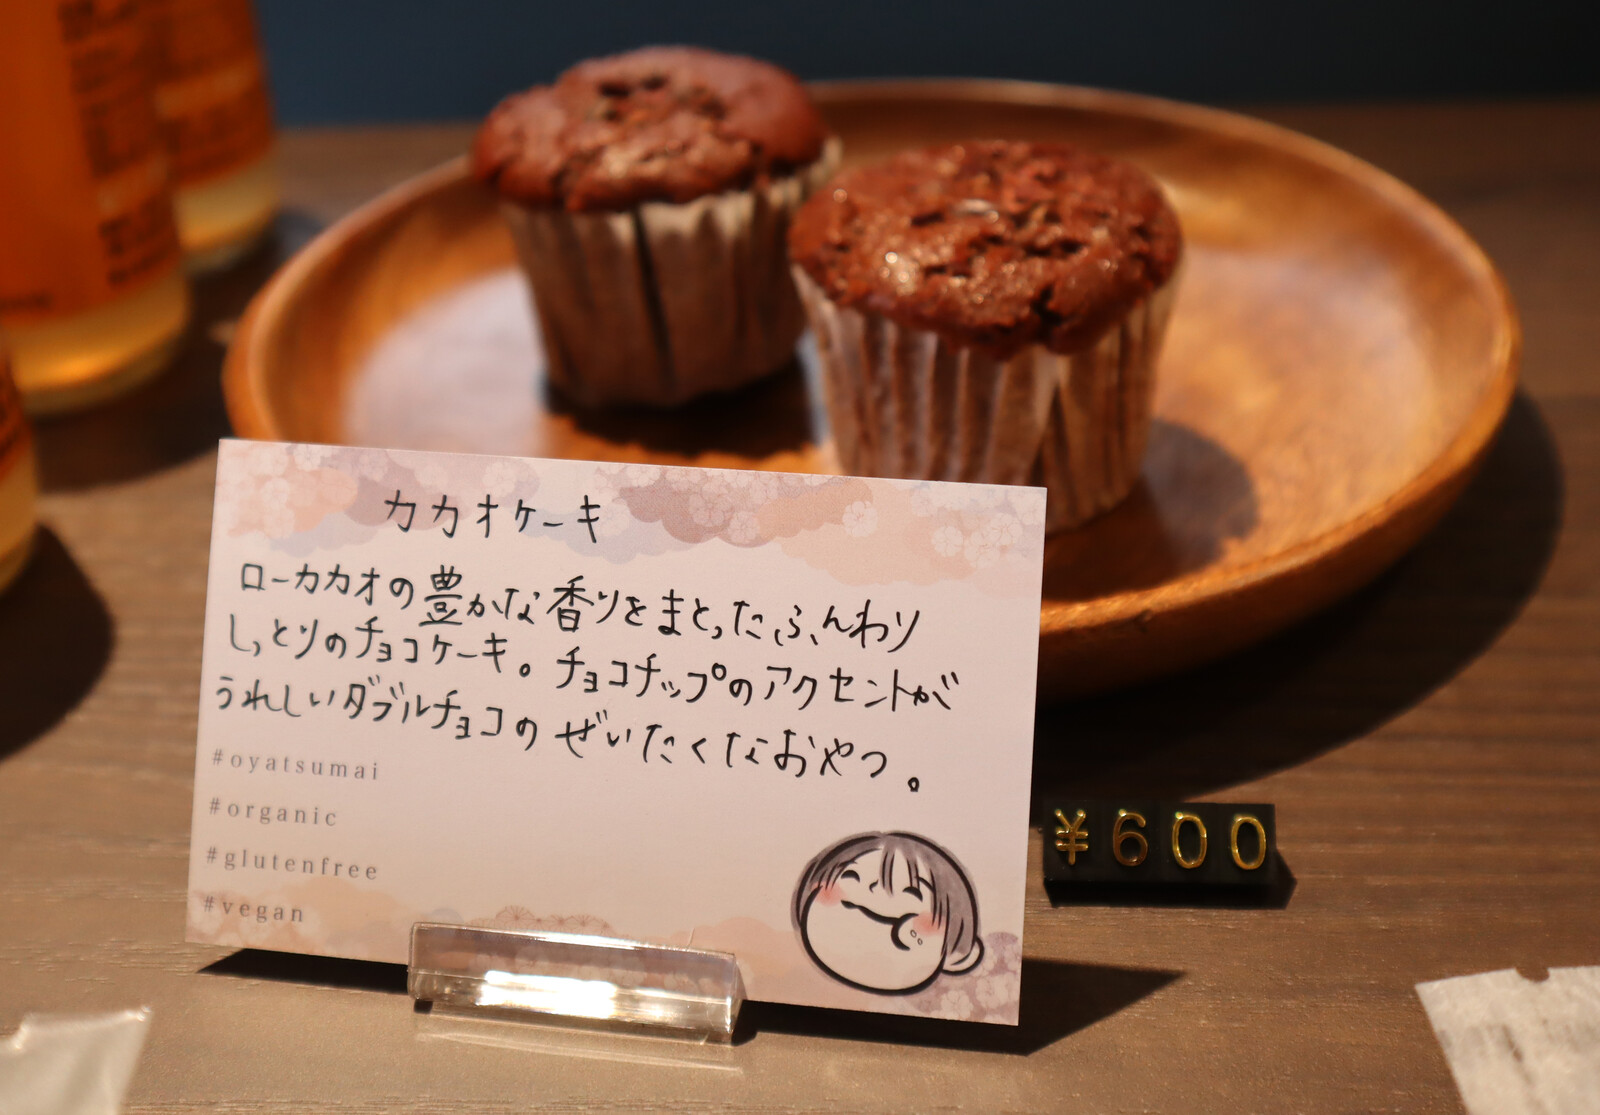 カカオケーキ
ローカカオの豊かな香りをまとったふんわり
しっとりのチョコケーキ。チョコチップのアクセントが
うれしいダブルチョコのぜいたくなおやつ。
#oyatsumai
#organic
#glutenfree
#vegan
¥600